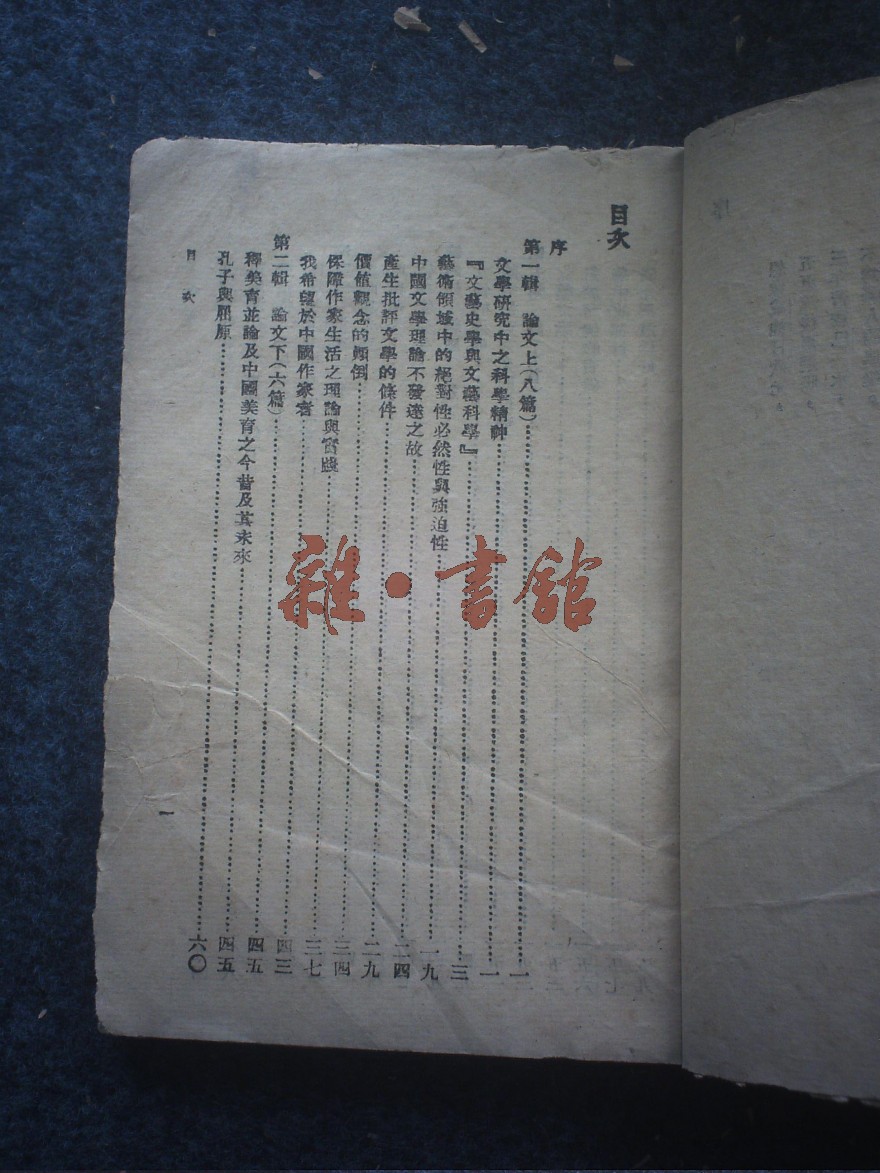 目次
序
第一輯　論文上(八篇)……………一
文學研究中之科學精神……………一
『文藝史學與文藝科學』……………三
藝術領域中的絕對性必然性與強迫性……………一九
中國文學理論不發達之故……………二四
產生批評文學的條件……………二九
價值觀念的顛倒……………三四
保障作家生活之理論與實踐……………三七
我希望於中國作家者……………四三
第二輯　論文下(六篇)……………四五
釋美育並論及中國美育之今昔及其未來……………四五
孔子與屈原……………六〇
目次
一
雜·書館